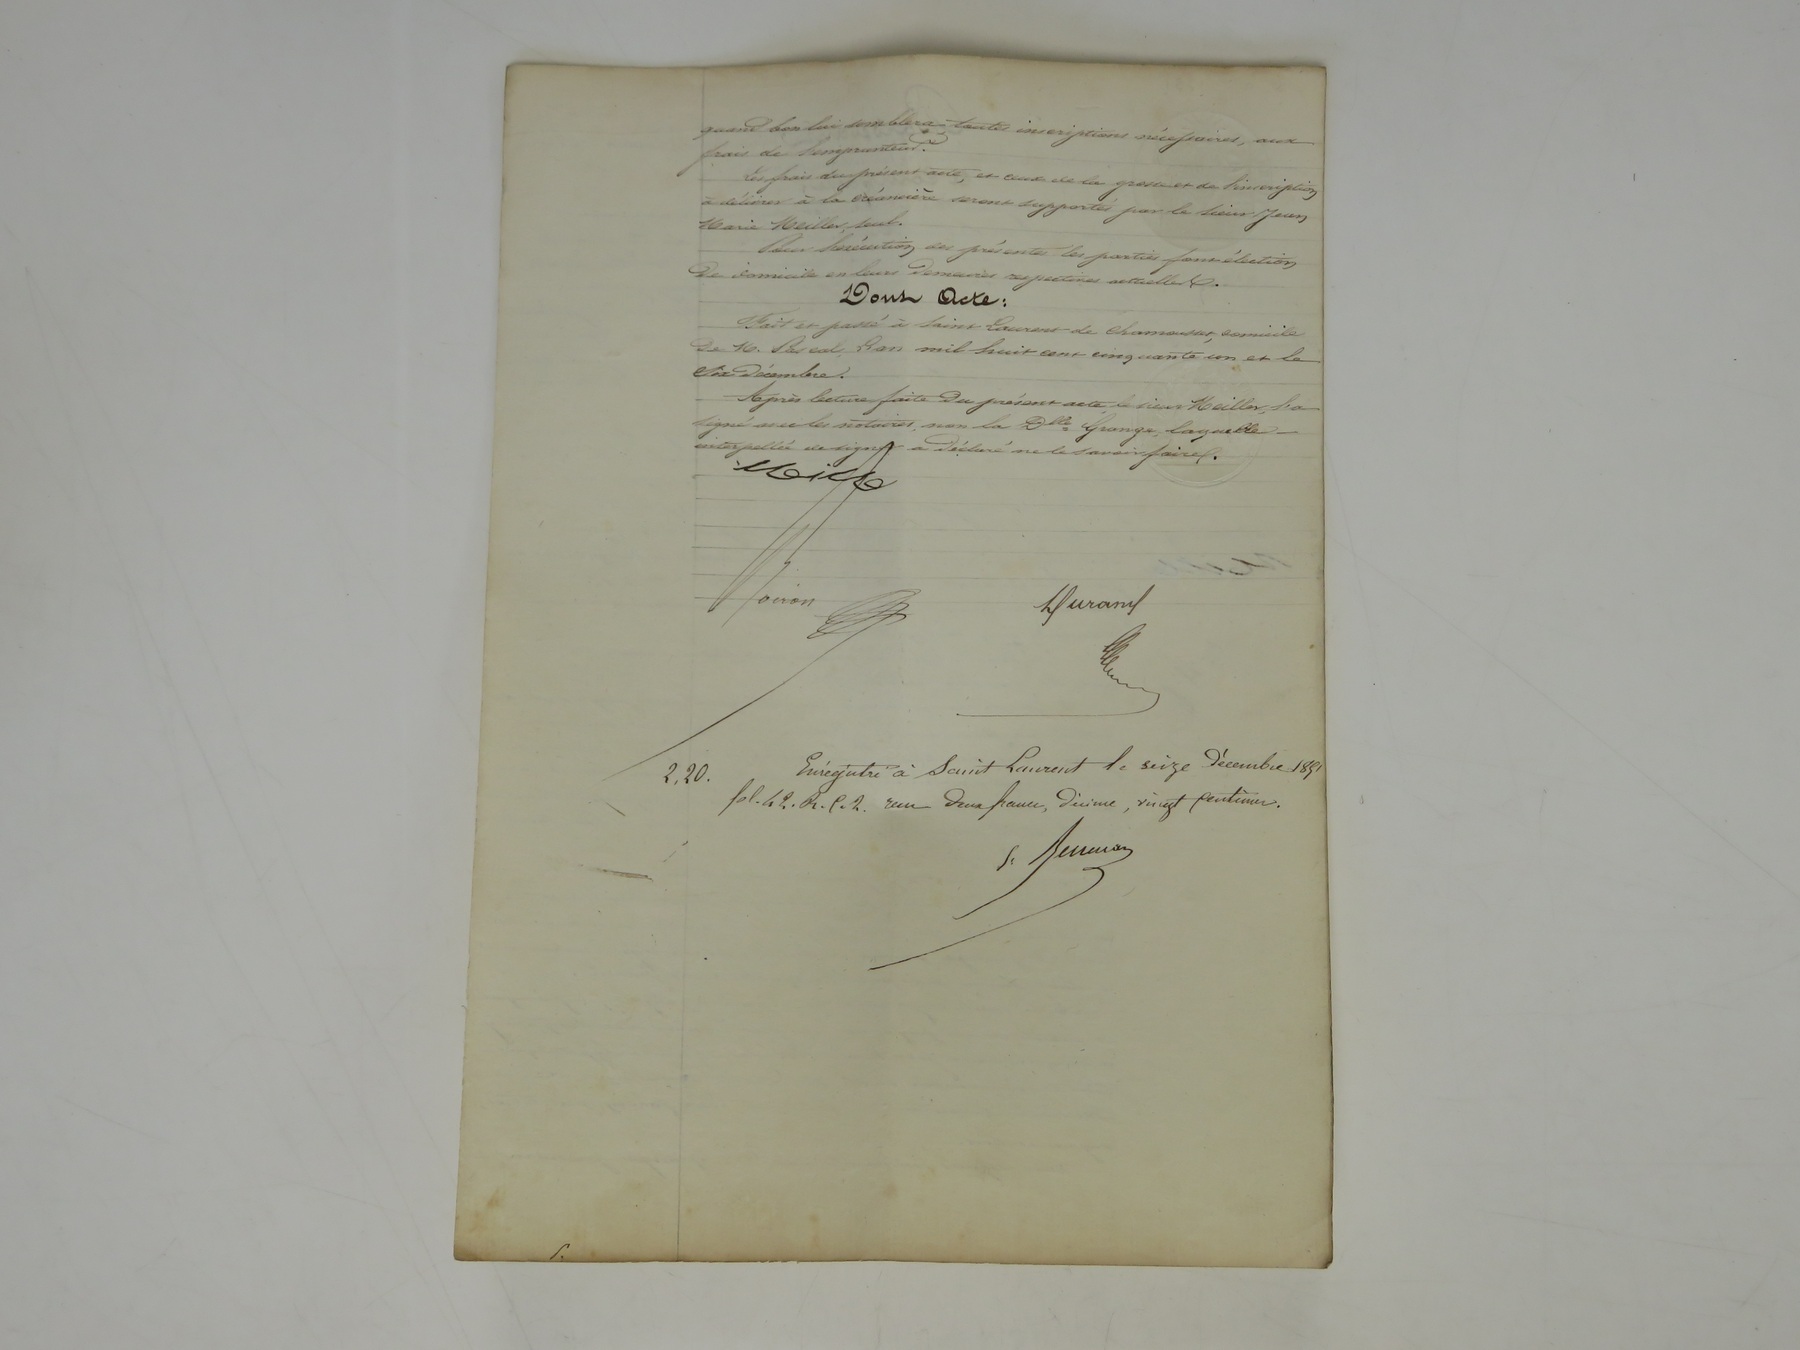 quand bon lui semblera toutes inscriptions nécessaires, aux
frais de l'emprunteur.
Les frais du présent acte, et ceux de la grosse et de l'inscription
à délivrer à la créancière seront supportés par le sieur Jean
Marie Meiller, seul.
Pour l'exécution des présentes les parties font élection
De domicile en leurs demeures respectives actuelles.
Dont Acte:
Fait et passé à Saint Laurent de Chamousset, domicile
De M. Pascal, l'an mil huit cent cinquante un et le
Six Décembre.
Après lecture faite Du présent acte le sieur Meiller, l'a
signé avec les notaires, non la Dlle Grange, laquelle
interpellée de signer a Déclaré ne le savoir faire.
Durand
2,20.
Enregistré à Saint Laurent le seize Décembre 1851
fol. 42. R. C. 2. reçu deux francs, décime, vingt centimes.